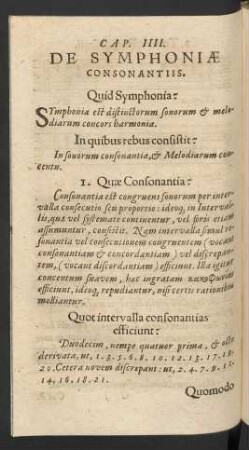 CAP. IIII.
DE SYMPHONIÆ
CONSONANTIIS.
Quid Symphonia?
SYmphonia est distinctorum sonorum & melo-
diarum concors harmonia.
In quibus rebus consistit?
In sonorum consonantia, & Melodiarum con-
centu.
1. Quæ Consonantia?
Consonantia est congruens sonorum per inter-
valla consecutio seu proportio: ideoq, in Interval-
lis, quæ vel systemate continentur, vel foris etiam
assumuntur, consistit. Nam intervalla simul so-
nantia vel consecutionem congruentem (vocant
consonantiam & concordantiam) vel discrepan-
tem, (vocant discordantiam) efficiunt. Illa igitur
concentum suavem, hæc ingratam κακοφωνίαν
efficiunt, ideoq, repudiantur, nisi certis rationibus
molliantur.
Quot intervalla consonantias
efficiunt?
Duodecim, nempe quatuor prima, & octo
derivata, ut, 1. 3. 5. 6. 8. 10. 12. 13. 15. 17. 19.
20. Cetera novem discrepant: ut, 2. 4. 7. 9. 11.
14. 16. 18. 21.
Quomodo